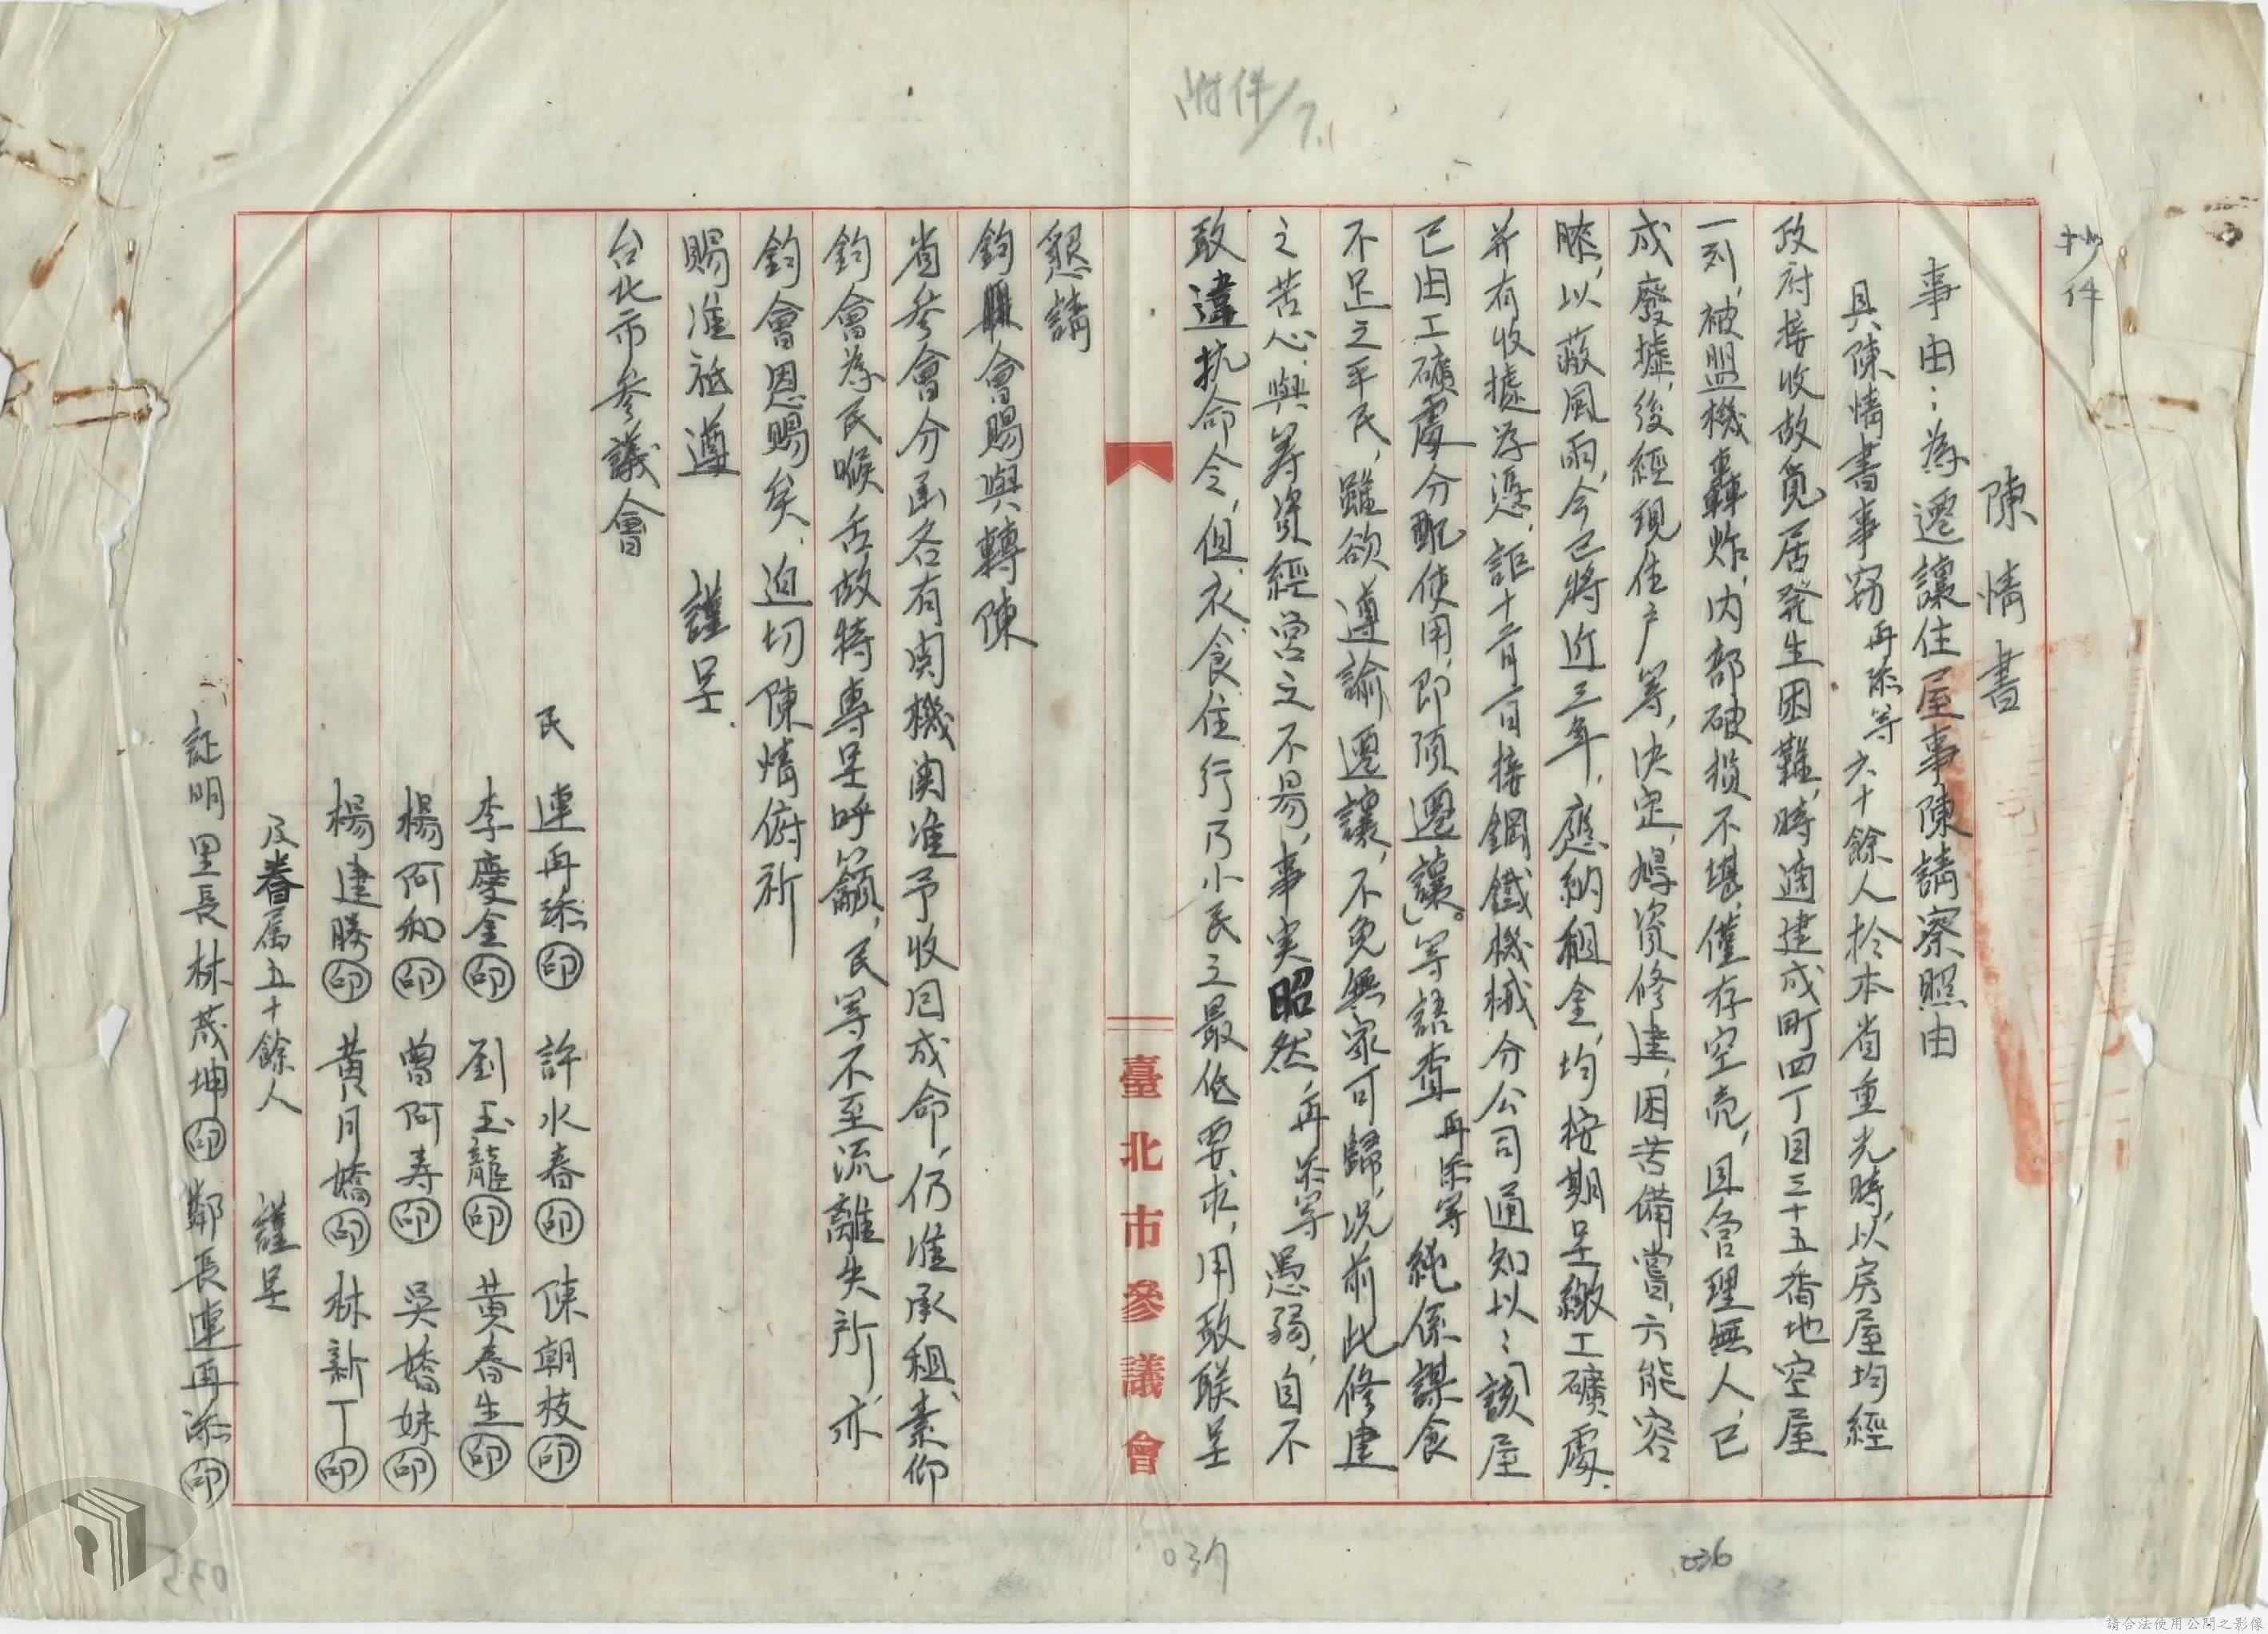 附件/7.
抄件
陳情書
事由：為遷讓住屋事陳請察照由
具陳情書事竊再添等六十餘人於本省重光時，以房屋均經
政府接收故覓居発生困難，時適建成町四丁目三十五番地空屋
一列，被盟機轟炸，内部破損不堪，僅存空壳，且管理無人，已
成廢墟，後經現住户等，决定，鳩資修建，困苦備嘗，方能容
膝，以蔽風雨，今已將近三年，應納租金，均按期呈繳工礦處，
并有收據為憑，詎十二月二日接鋼鐵機械分公司通知以：該屋
已由工礦處分配使用，即須遷讓」。等語查再添等純係謀食
不足之平民，雖欲遵諭遷讓，不免無家可歸，况前此修建
之苦心，與籌資經営之不易，事実昭然，再添等愚弱，自不
敢違抗命令，但衣食住行乃小民之最低要求，用敢聯呈
臺北市參議會
懇請
鈞會賜與轉陳
省參會分函各有関機関准予收回成命，仍准承租，素仰
鈞會為民喉舌故特專呈呼籲，民等不至流離失所，亦
鈞會恩賜矣，迫切陳情俯祈
賜准祗遵　謹呈
台北市參議會
民　連再添㊞　許水春㊞　陳朝枝㊞
李慶金㊞　劉玉龍㊞　黃春生㊞
楊阿和㊞　曾阿寿㊞　吳嬌妹㊞
楊建勝㊞　黃月嬌㊞　林新丁㊞
及眷属五十餘人　謹呈
証明里長林茂坤㊞　鄰長連再添㊞
036
037
035
請合法使用公開之影像